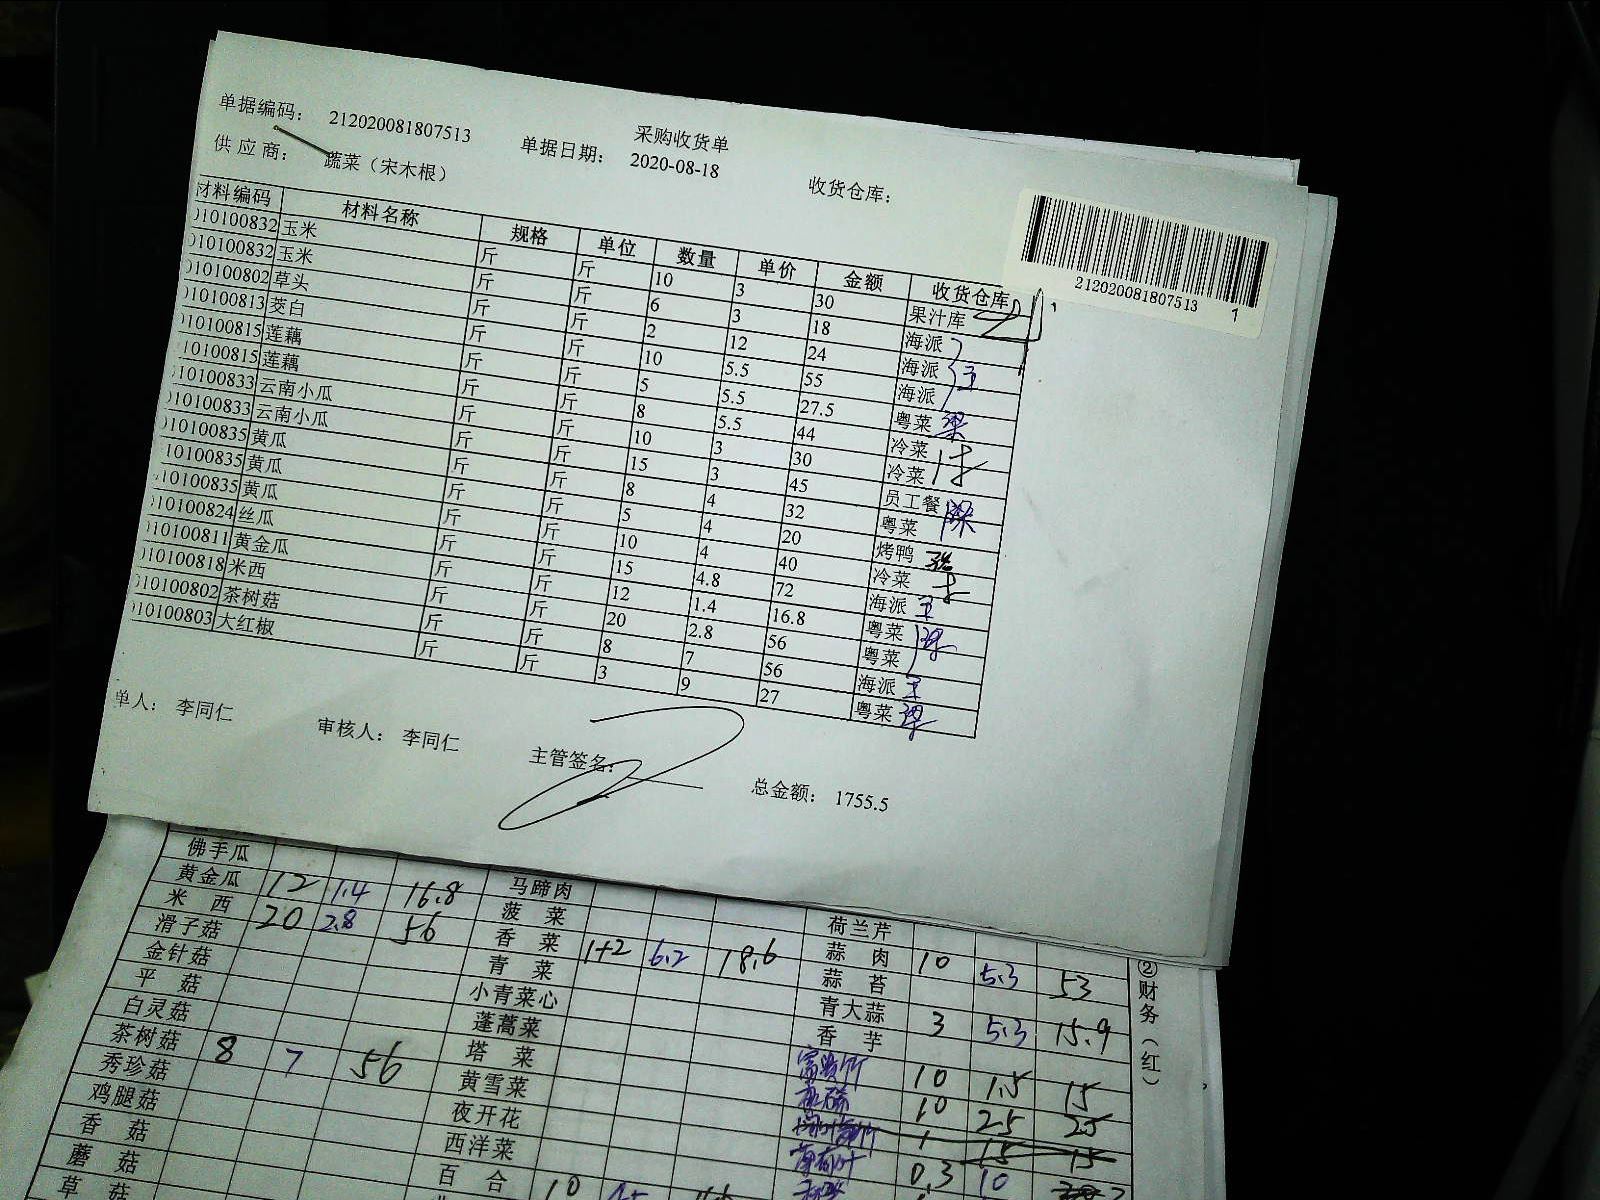 采购收货单
单据编码： 212020081807513 单据日期： 2020-08-18 收货仓库：
供应商： 蔬菜（宋木根）
212020081807513 1
材料编码 材料名称 规格 单位 数量 单价 金额 收货仓库
010100832 玉米 斤 斤 10 3 30 果汁库
010100832 玉米 斤 斤 6 3 18 海派
010100802 草头 斤 斤 2 12 24 海派 王
010100813 茭白 斤 斤 10 5.5 55 海派
010100815 莲藕 斤 斤 5 5.5 27.5 粤菜 梁
010100815 莲藕 斤 斤 8 5.5 44 冷菜
010100833 云南小瓜 斤 斤 10 3 30 冷菜
010100833 云南小瓜 斤 斤 15 3 45 员工餐
010100835 黄瓜 斤 斤 8 4 32 粤菜 梁
010100835 黄瓜 斤 斤 5 4 20 烤鸭
010100835 黄瓜 斤 斤 10 4 40 冷菜
010100824 丝瓜 斤 斤 15 4.8 72 海派 王
010100811 黄金瓜 斤 斤 12 1.4 16.8 粤菜
010100818 米西 斤 斤 20 2.8 56 粤菜 梁
010100802 茶树菇 斤 斤 8 7 56 海派 王
010100803 大红椒 斤 斤 3 9 27 粤菜 梁
单人： 李同仁 审核人： 李同仁 主管签名： 总金额： 1755.5
佛手瓜
黄金瓜 12 1.4 16.8 马蹄肉
米西 20 2.8 56 菠菜 荷兰芹
滑子菇 香菜 1+2 6.2 18.6 蒜肉 10 5.3 53
金针菇 青菜 蒜苔
平菇 小青菜心 青大蒜 3 5.3 15.9
白灵菇 蓬蒿菜 香芋
茶树菇 8 7 56 塔菜 富贵竹 10 1.5 15
秀珍菇 黄雪菜 10 2.5 25
鸡腿菇 夜开花 1 15 15
香菇 西洋菜 薄荷叶 0.3 10
蘑菇 百合 10
草菇
②财务（红）